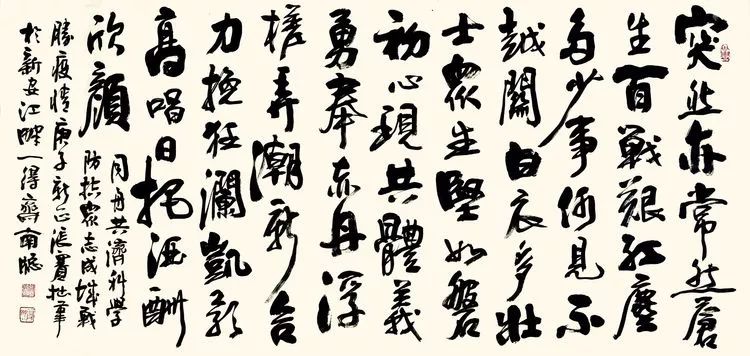 突然亦常然蒼
生百戰艱紅塵
多少事何見不
越關白衣多壯
士眾生堅如磐
初心現共體義
勇奉赤丹浮
槎弄潮新合
力挽狂瀾凱歌
高唱日把酒酬
欣顏
同舟共濟科學
防控眾志成城戰
勝疫情庚子新正張
於新安江畔一得齋南窗